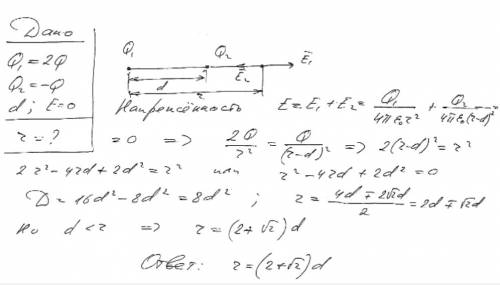 Дано
Q₁ = 2Q
Q₂ = -Q
d; E=0
r = ?
Q₁ Q₂ E₂ E₁
d
r
Напрежённость E = E₁ + E₂ = Q₁/4πε₀r² + Q₂/4πε₀(r-d)² =
= 0 => 2Q/r² = Q/(r-d)² => 2(r-d)² = r²
2r² - 4rd + 2d² = r² или r² - 4rd + 2d² = 0
D = 16d² - 8d² = 8d² ; r = (4d ∓ 2√2d)/2 = 2d ∓ √2d
Но d < r => r = (2+√2)d
Ответ: r = (2+√2)d